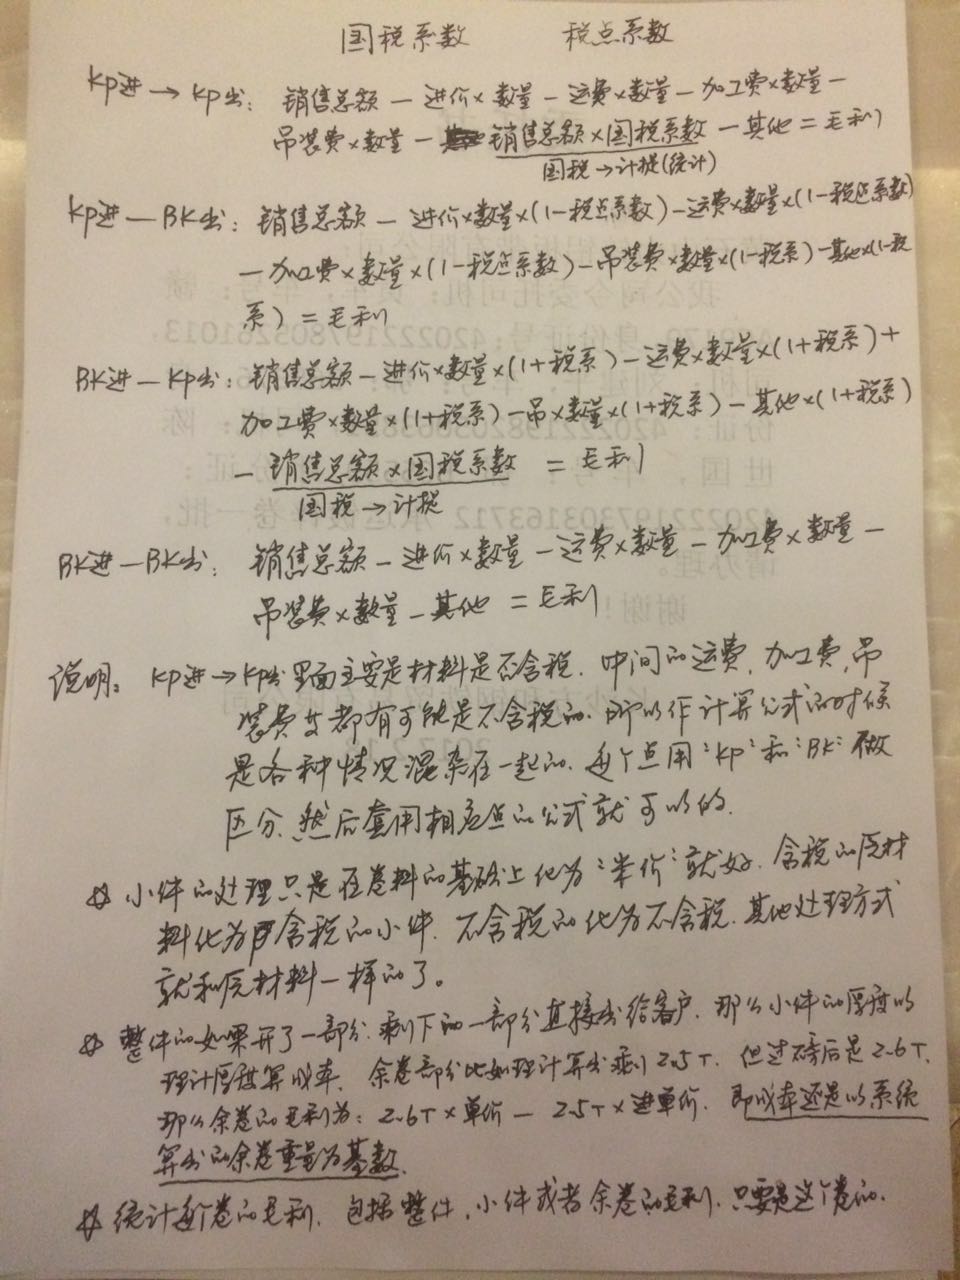 国税系数 税点系数
Kp进→Kp出: 销售总额－进价×数量－运费×数量－加工费×数量－
吊装费×数量－销售总额×国税系数－其他＝毛利
国税→计提(统计)
Kp进—BK出: 销售总额－进价×数量×(1-税点系数)－运费×数量×(1-税点系数)
－加工费×数量×(1-税点系数)－吊装费×数量×(1-税系)－其他×(1-税
系)＝毛利
BK进—Kp出: 销售总额－进价×数量×(1+税系)－运费×数量×(1+税系)+
加工费×数量×(1+税系)－吊×数量×(1+税系)－其他×(1+税系)
－销售总额×国税系数 ＝毛利
国税→计提
BK进—BK出: 销售总额－进价×数量－运费×数量－加工费×数量－
吊装费×数量－其他＝毛利
说明: Kp进→Kp出里面主要是材料是否含税. 中间的运费, 加工费, 吊
装费等都有可能是不含税的. 所以作计算公式的时候
是各种情况混杂在一起的. 每个点用"Kp"和"BK"做
区分, 然后套用相应点的公式就可以的.
小件的处理只是在卷料的基础上化为"单价"就好. 含税的原材
料化为含税的小件. 不含税的化为不含税. 其他处理方式
就和原材料一样的了。
整件的如果开了一部分. 剩下的一部分直接出给客户. 那么小件的厚度以
理计厚度算收率. 余卷部分比如理计算出剩2.5T. 但过磅后是2.6T.
那么余卷的毛利为: 2.6T×单价－2.5T×进单价. 即收率还是以系统
算出的余卷重量为基数.
统计每个卷的毛利. 包括整件, 小件或者余卷的毛利. 只要是这个卷的.
我公司今委托司机:
身份证号:420222197805261013
份证:
陈
世国, 车号:
份证:
420222197303163712
卷一批,
请办理。
谢谢!